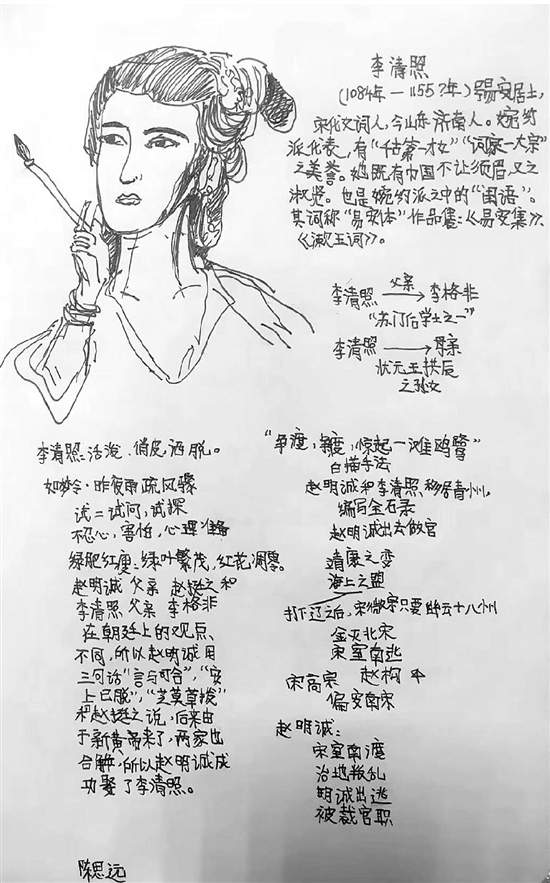 李清照
(1084年—1155?年)号易安居士,
宋代女词人,今山东济南人。婉约
派代表,有“千古第一才女”“词家一大宗”
之美誉。她既有巾国不让须眉,又之
淑贤。也是婉约派之中的“闺语”。
其词称“易安体”作品集:《易安集》
《漱玉词》。
李清照 父亲→ 李格非
“苏门后学士之一”
李清照 → 母亲
状元王拱辰
之孙女
李清照:活泼、俏皮、洒脱。
如梦令·昨夜雨疏风骤
试:试问,试探
不忍心,害怕,心理准备
绿肥红瘦:绿叶繁茂,红花凋零。
赵明诚 父亲 赵挺之和
李清照 父亲 李格非
在朝廷上的观点、
不同,所以赵明诚用
三句话“言与司合”,“安
上已脱”,“芝芙草拔”
和赵挺之说,后来由
于新黄帝来了,两家也
合解,所以赵明诚成
功娶了李清照。
“争渡,争渡,惊起一滩鸥鹭”
白描手法
赵明诚和李清照移居青州。
编写金石录
赵明诚出去做官
靖康之变
海上之盟
打下辽之后,宋徽宗只要幽云十八州
金灭北宋
宋室南逃
宋高宗 赵构
偏安南宋
赵明诚:
宋室南渡
治地叛乱
明诚出逃
被裁官职
陈思远